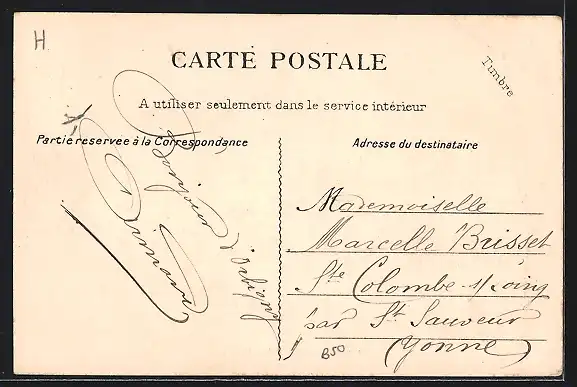 H
CARTE POSTALE
Timbre
A utiliser seulement dans le service intérieur
Partie reservee à la Correspondance
Adresse du destinataire
Bonjour
d'
Mademoiselle
Marcelle Brisset
Ste Colombe s/Loing
par St Sauveur
(Yonne)
B50